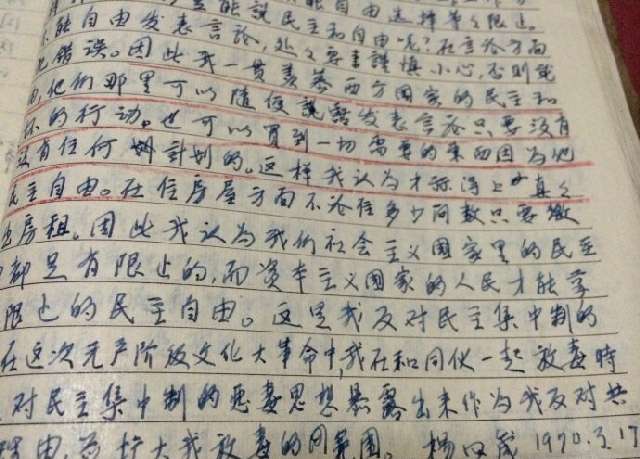 能說民主和自由 自由选择等々限止
不能自由发表言論,处々要事謹慎小心,否則說
错误。因此我一貫羡慕西方国家的民主和
由,他们那里可以随便說話发表言论只要没有
坏的行动。也可以買到一切需要的東西因为他
没有任何計划的。这样我认为才称得上真々
民主自由。在住房屋方面不论住多少间数只要繳
房租。因此我认为我们社会主义国家里的民主
都是有限止的,而资本主义国家的人民才能享
限止的民主自由。这是我反对民主集中制的
在这次无产阶级文化大革命中,我在和同伙一起放毒時
对民主集中制的恶毒思想暴露出来作为我反对共
理由,为扩大我放毒的周範围。 楊 1970.3.17